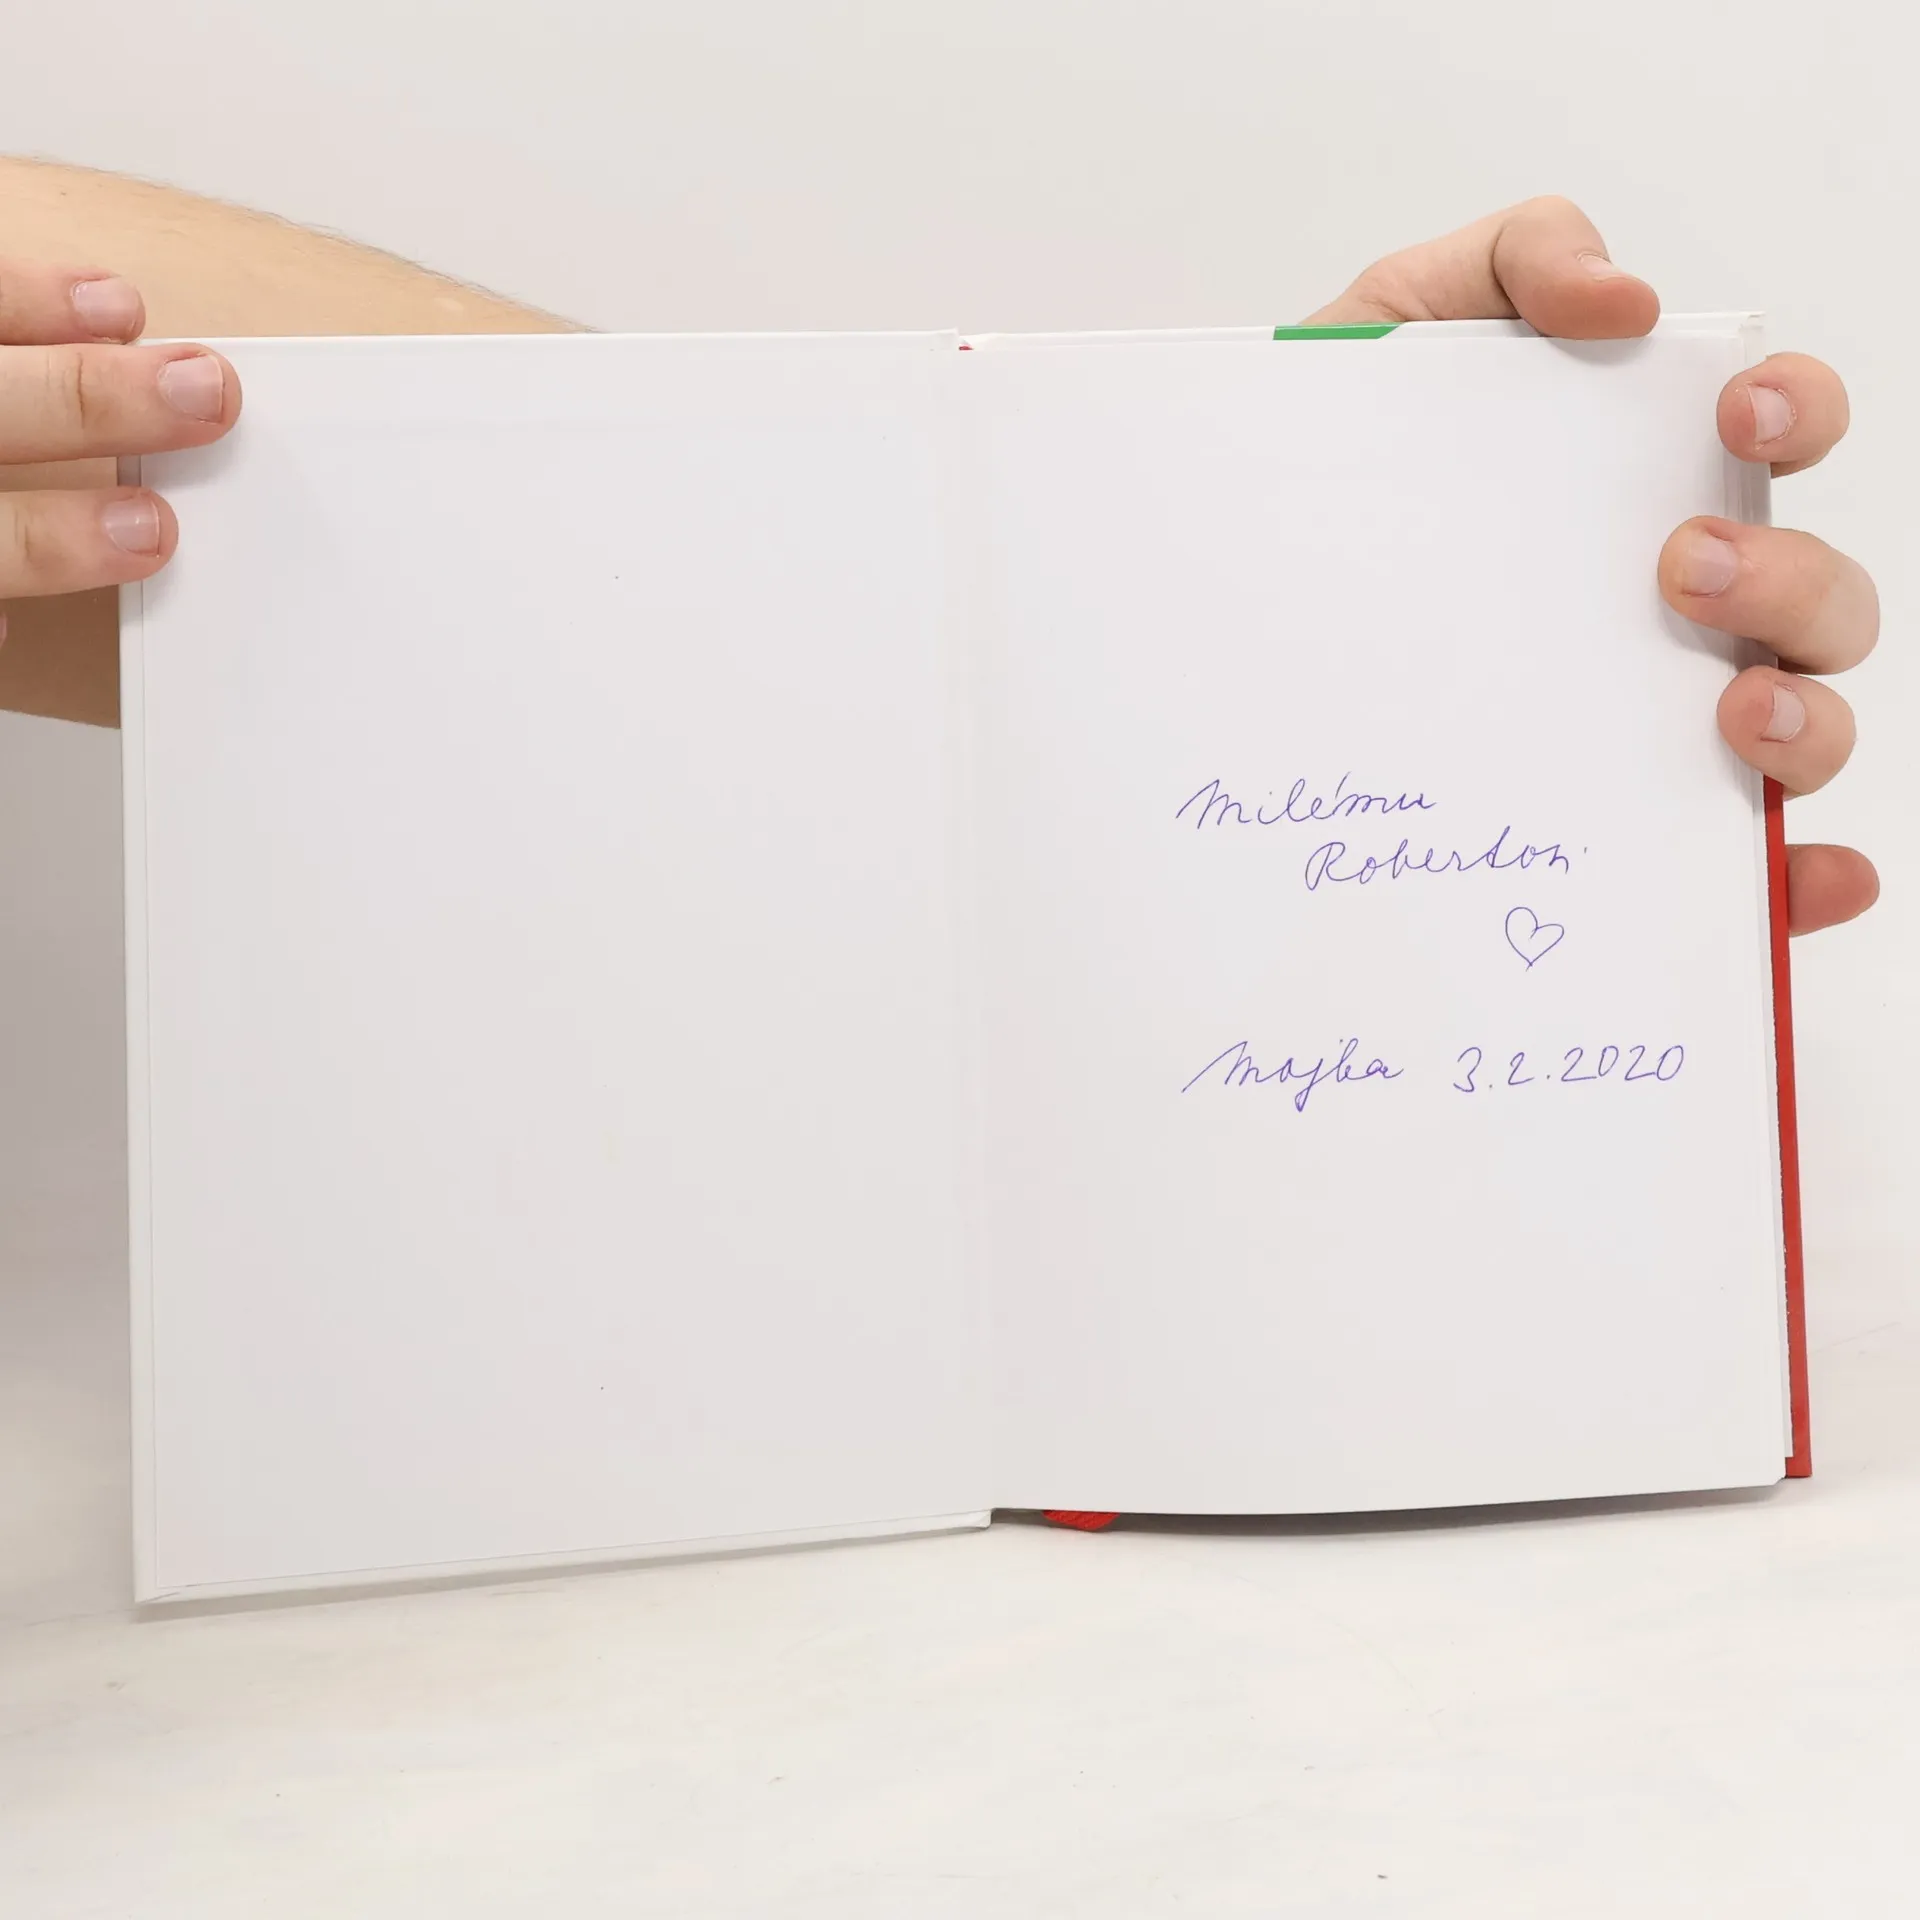 Milému
Robertovi
Mojka 3.2.2020